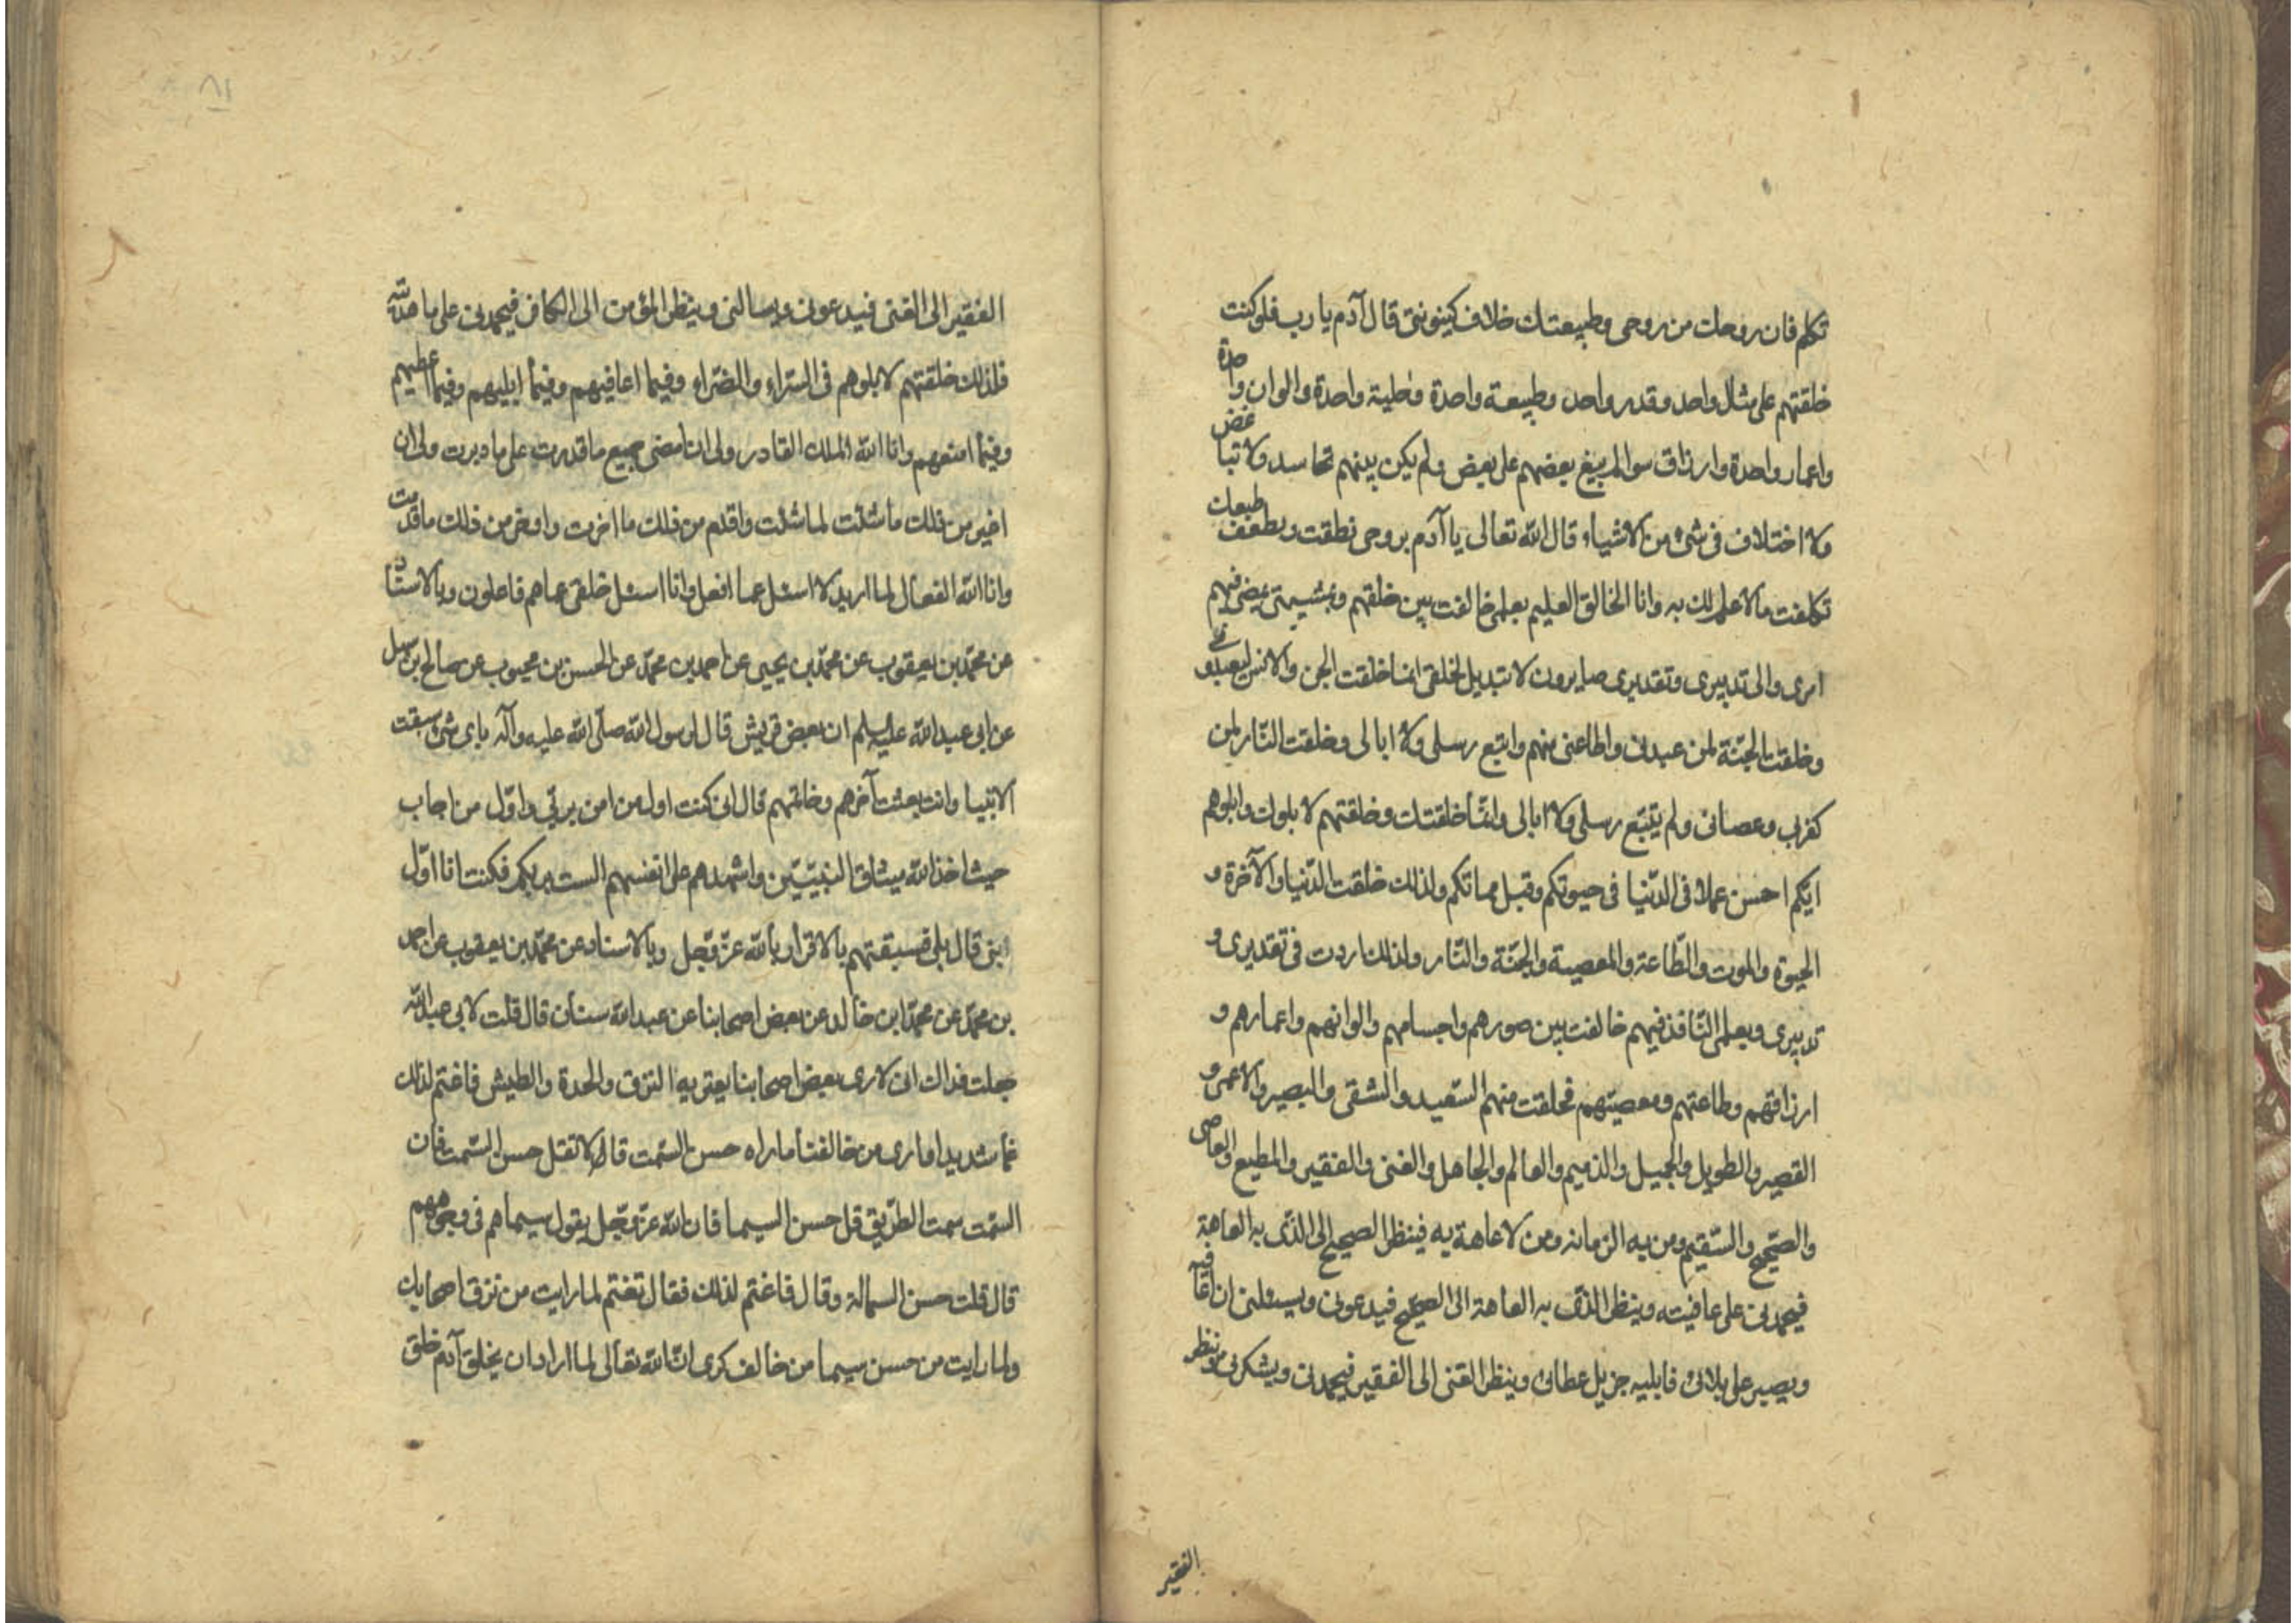 تكلم فان روحك من روحى وطبيعتك خلاف كينونتى قال آدم يا رب فلو كنت
خلقتهم على مثال واحد وقدر واحد وطبيعة واحدة وخلية واحدة والوان واحدة
واعمار واحدة وارزاق سوا لم يبغ بعضهم على بعض ولم يكن بينهم تحاسد ولا تباغض
ولا اختلاف فى شئ من الاشياء قال الله تعالى يا آدم بروحى نطقت وبضعف طبيعتك
تكلفت ما لا علم لك به وانا الخالق العليم بعلمى خالفت بين خلقهم وبمشيتى يمضى فيهم
امرى والى تدبيرى وتقديرى صايرون لا تبديل لخلقى انما خلقت الجن والانس ليعبدونى
وخلقت الجنة لمن عبدنى واطاعنى منهم واتبع رسلى ولا ابالى وخلقت النار لمن
كفر بى وعصانى ولم يتبع رسلى ولا ابالى وانما خلقتك وخلقتهم لابلوك وابلوهم
ايكم احسن عملا فى الدنيا فى حيوتكم وقبل مماتكم ولذلك خلقت الدنيا والآخرة و
الحيوة والموت والطاعة والمعصية والجنة والنار ولذلك اردت فى تقديرى و
تدبيرى وبعلمى النافذ فيهم خالفت بين صورهم واجسامهم والوانهم واعمارهم و
ارزاقهم وطاعتهم ومعصيتهم فخلقت منهم السعيد والشقى والبصير والاعمى و
القصير والطويل والجميل والذميم والعالم والجاهل والغنى والفقير والمطيع والعاصى
والصحيح والسقيم ومن به الزمانة ومن لا عاهة به فينظر الصحيح الى الذى به العاهة
فيحمدنى على عافيته وينظر الذى به العاهة الى الصحيح فيدعونى ويسئلنى ان اعافيه
ويصبر على بلائى فابليه جزيل عطائى وينظر الغنى الى الفقير فيحمدنى ويشكرنى وينظر
الفقير
٨١
الفقير الى الغنى فيدعونى ويسالنى وينظر المؤمن الى الكافر فيحمدنى على ما هديته
فلذلك خلقتهم لابلوهم فى السراء والضراء وفيما اعافيهم وفيما ابليهم وفيما اعطيهم
وفيما امنعهم وانا الله الملك القادر ولى ان امضى جميع ما قدرت على ما دبرت ولى ان
اغير من ذلك ما شئت لما شئت واقدم من ذلك ما اخرت واوخر من ذلك ما قدمت
وانا الله الفعال لما اريد لا اسئل عما افعل وانا اسئل خلقى عما هم فاعلون وبالاسناد
عن محمد بن يعقوب عن محمد بن يحيى عن احمد بن محمد عن الحسن بن محبوب عن صالح بن سهل
عن ابى عبد الله عليه السلم ان بعض قريش قال لرسول الله صلى الله عليه وآله باى شئ سبقت
الانبيا وانت بعثت آخرهم وخاتمهم قال انى كنت اول من امن بربى واول من اجاب
حيث اخذ الله ميثاق النبيين واشهدهم على انفسهم الست بربكم فكنت انا اول
نبى قال بلى فسبقتهم بالاقرار بالله عز وجل وبالاسناد عن محمد بن يعقوب عن احمد
بن محمد عن محمد ابن خالد عن بعض اصحابنا عن عبد الله سنان قال قلت لابى عبد الله
جعلت فداك انى لارى بعض اصحابنا يعتريه النزق والحدة والطيش فاغتم لذلك
غما شديدا وارى من خالفنا ماراه حسن السمت قال لا تقل حسن السمت فان
السمت سمت الطريق قل حسن السيما فان الله عز وجل يقول سيماهم فى وجوههم
قال قلت حسن السمالة وقال فاغتم لذلك فقال تغتم لما رايت من نزق اصحابك
ولما رايت من حسن سيما من خالف كرى ان الله تعالى لما اراد ان يخلق آدم خلق